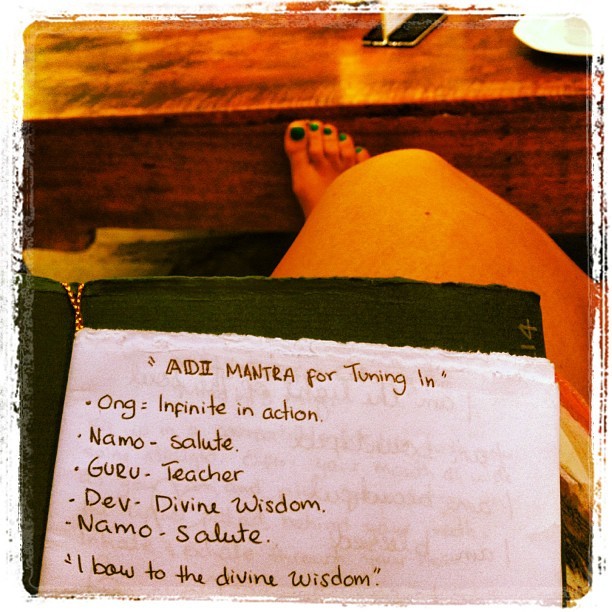 "ADII MANTRA for Tuning In"
• Ong = Infinite in action.
• Namo - Salute.
• GURU - Teacher
- Dev - Divine Wisdom.
- Namo - Salute.
"I bow to the divine wisdom".
14